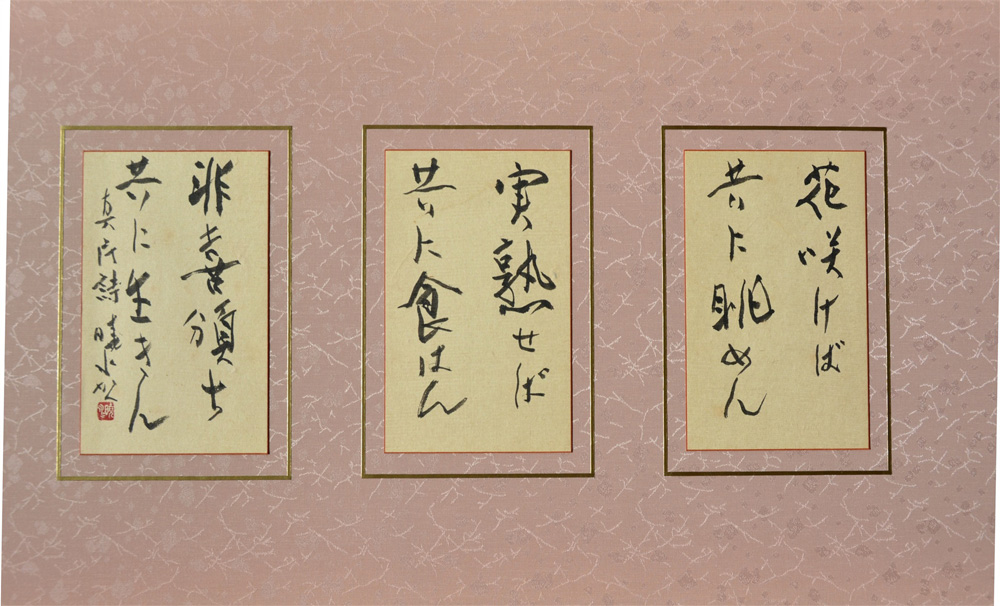 花咲けば
共に眺めん
実熟せば
共に食はん
悲喜頒ち
共に生きん
真民詩